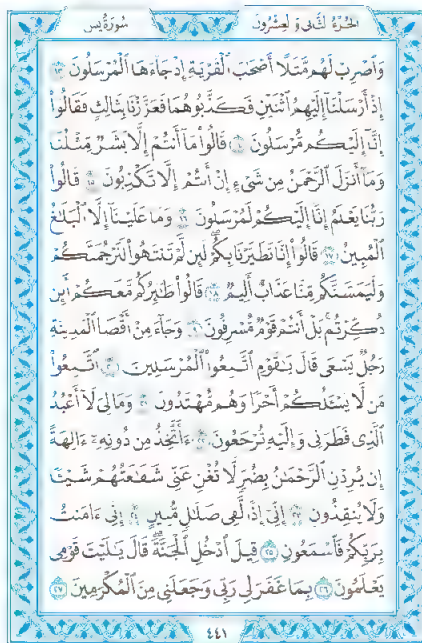 الجزء الثاني والعشرون
سورة يس
وَٱضْرِبْ لَهُم مَّثَلًا أَصْحَٰبَ ٱلْقَرْيَةِ إِذْ جَآءَهَا ٱلْمُرْسَلُونَ ١٣
إِذْ أَرْسَلْنَآ إِلَيْهِمُ ٱثْنَيْنِ فَكَذَّبُوهُمَا فَعَزَّزْنَا بِثَالِثٍ فَقَالُوٓا۟
إِنَّآ إِلَيْكُم مُّرْسَلُونَ ١٤ قَالُوا۟ مَآ أَنتُمْ إِلَّا بَشَرٌ مِّثْلُنَا
وَمَآ أَنزَلَ ٱلرَّحْمَٰنُ مِن شَىْءٍ إِنْ أَنتُمْ إِلَّا تَكْذِبُونَ ١٥ قَالُوا۟
رَبُّنَا يَعْلَمُ إِنَّآ إِلَيْكُمْ لَمُرْسَلُونَ ١٦ وَمَا عَلَيْنَآ إِلَّا ٱلْبَلَٰغُ
ٱلْمُبِينُ ١٧ قَالُوٓا۟ إِنَّا تَطَيَّرْنَا بِكُمْ لَئِن لَّمْ تَنتَهُوا۟ لَنَرْجُمَنَّكُمْ
وَلَيَمَسَّنَّكُم مِّنَّا عَذَابٌ أَلِيمٌ ١٨ قَالُوا۟ طَٰٓئِرُكُم مَّعَكُمْ أَئِن
ذُكِّرْتُم بَلْ أَنتُمْ قَوْمٌ مُّسْرِفُونَ ١٩ وَجَآءَ مِنْ أَقْصَا ٱلْمَدِينَةِ
رَجُلٌ يَسْعَىٰ قَالَ يَٰقَوْمِ ٱتَّبِعُوا۟ ٱلْمُرْسَلِينَ ٢٠ ٱتَّبِعُوا۟
مَن لَّا يَسْـَٔلُكُمْ أَجْرًا وَهُم مُّهْتَدُونَ ٢١ وَمَا لِىَ لَآ أَعْبُدُ
ٱلَّذِى فَطَرَنِى وَإِلَيْهِ تُرْجَعُونَ ٢٢ ءَأَتَّخِذُ مِن دُونِهِۦٓ ءَالِهَةً
إِن يُرِدْنِ ٱلرَّحْمَٰنُ بِضُرٍّ لَّا تُغْنِ عَنِّى شَفَٰعَتُهُمْ شَيْـًٔا
وَلَا يُنقِذُونِ ٢٣ إِنِّىٓ إِذًا لَّفِى ضَلَٰلٍ مُّبِينٍ ٢٤ إِنِّىٓ ءَامَنتُ
بِرَبِّكُمْ فَٱسْمَعُونِ ٢٥ قِيلَ ٱدْخُلِ ٱلْجَنَّةَ قَالَ يَٰلَيْتَ قَوْمِى
يَعْلَمُونَ ٢٦ بِمَا غَفَرَ لِى رَبِّى وَجَعَلَنِى مِنَ ٱلْمُكْرَمِينَ ٢٧
٤٤١